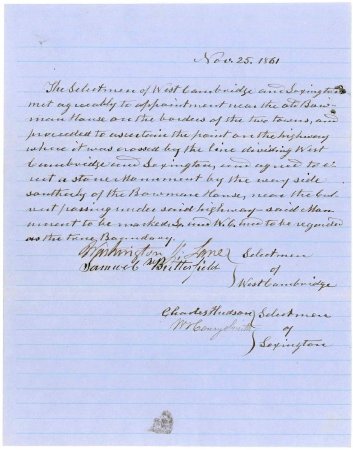 Nov. 25. 1861
The Selectmen of West Cambridge and Lexington
met agreeably to appointment near the old Bow-
man House on the borders of the two towns, and
proceeded to ascertain the point on the highway
where it was crossed by the line dividing West
Cambridge and Lexington, and agreed to e-
rect a stone Monument by the way side
southerly of the Bowman House, near the Cul-
vert passing under said highway—said Mon-
ument to be marked L. and W.C. and to be regarded
as the true Boundary.
Washington J. Lane
Samuel Butterfield
Selectmen
of
West Cambridge
Charles Hudson
W. H. Smith
Selectmen
of
Lexington